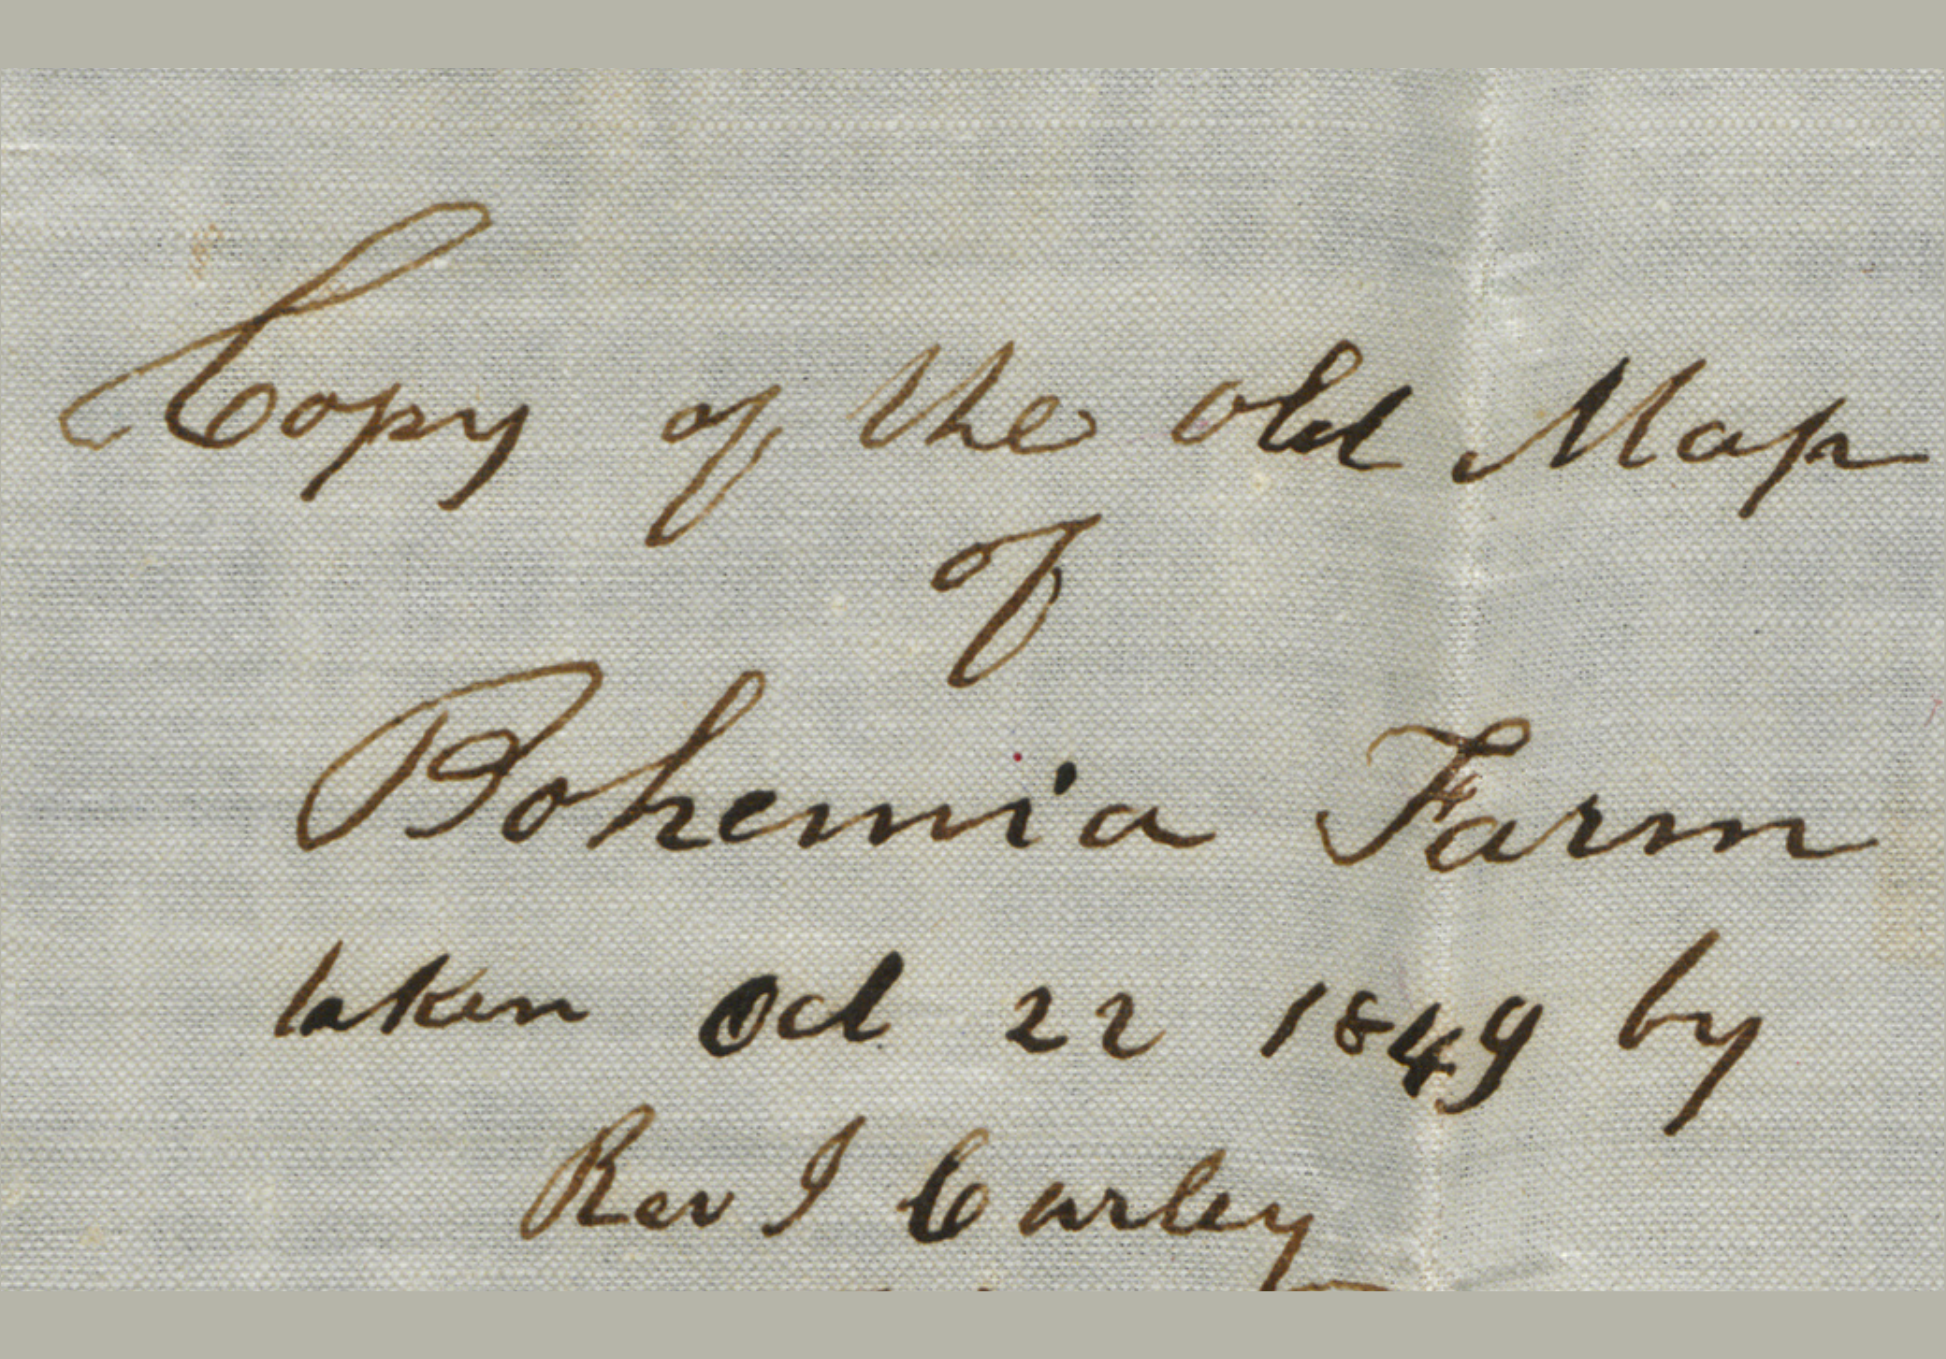 Copy of the Old Map
of
Bohemia Farm
taken Oct 22 1849 by
Rev J Curley